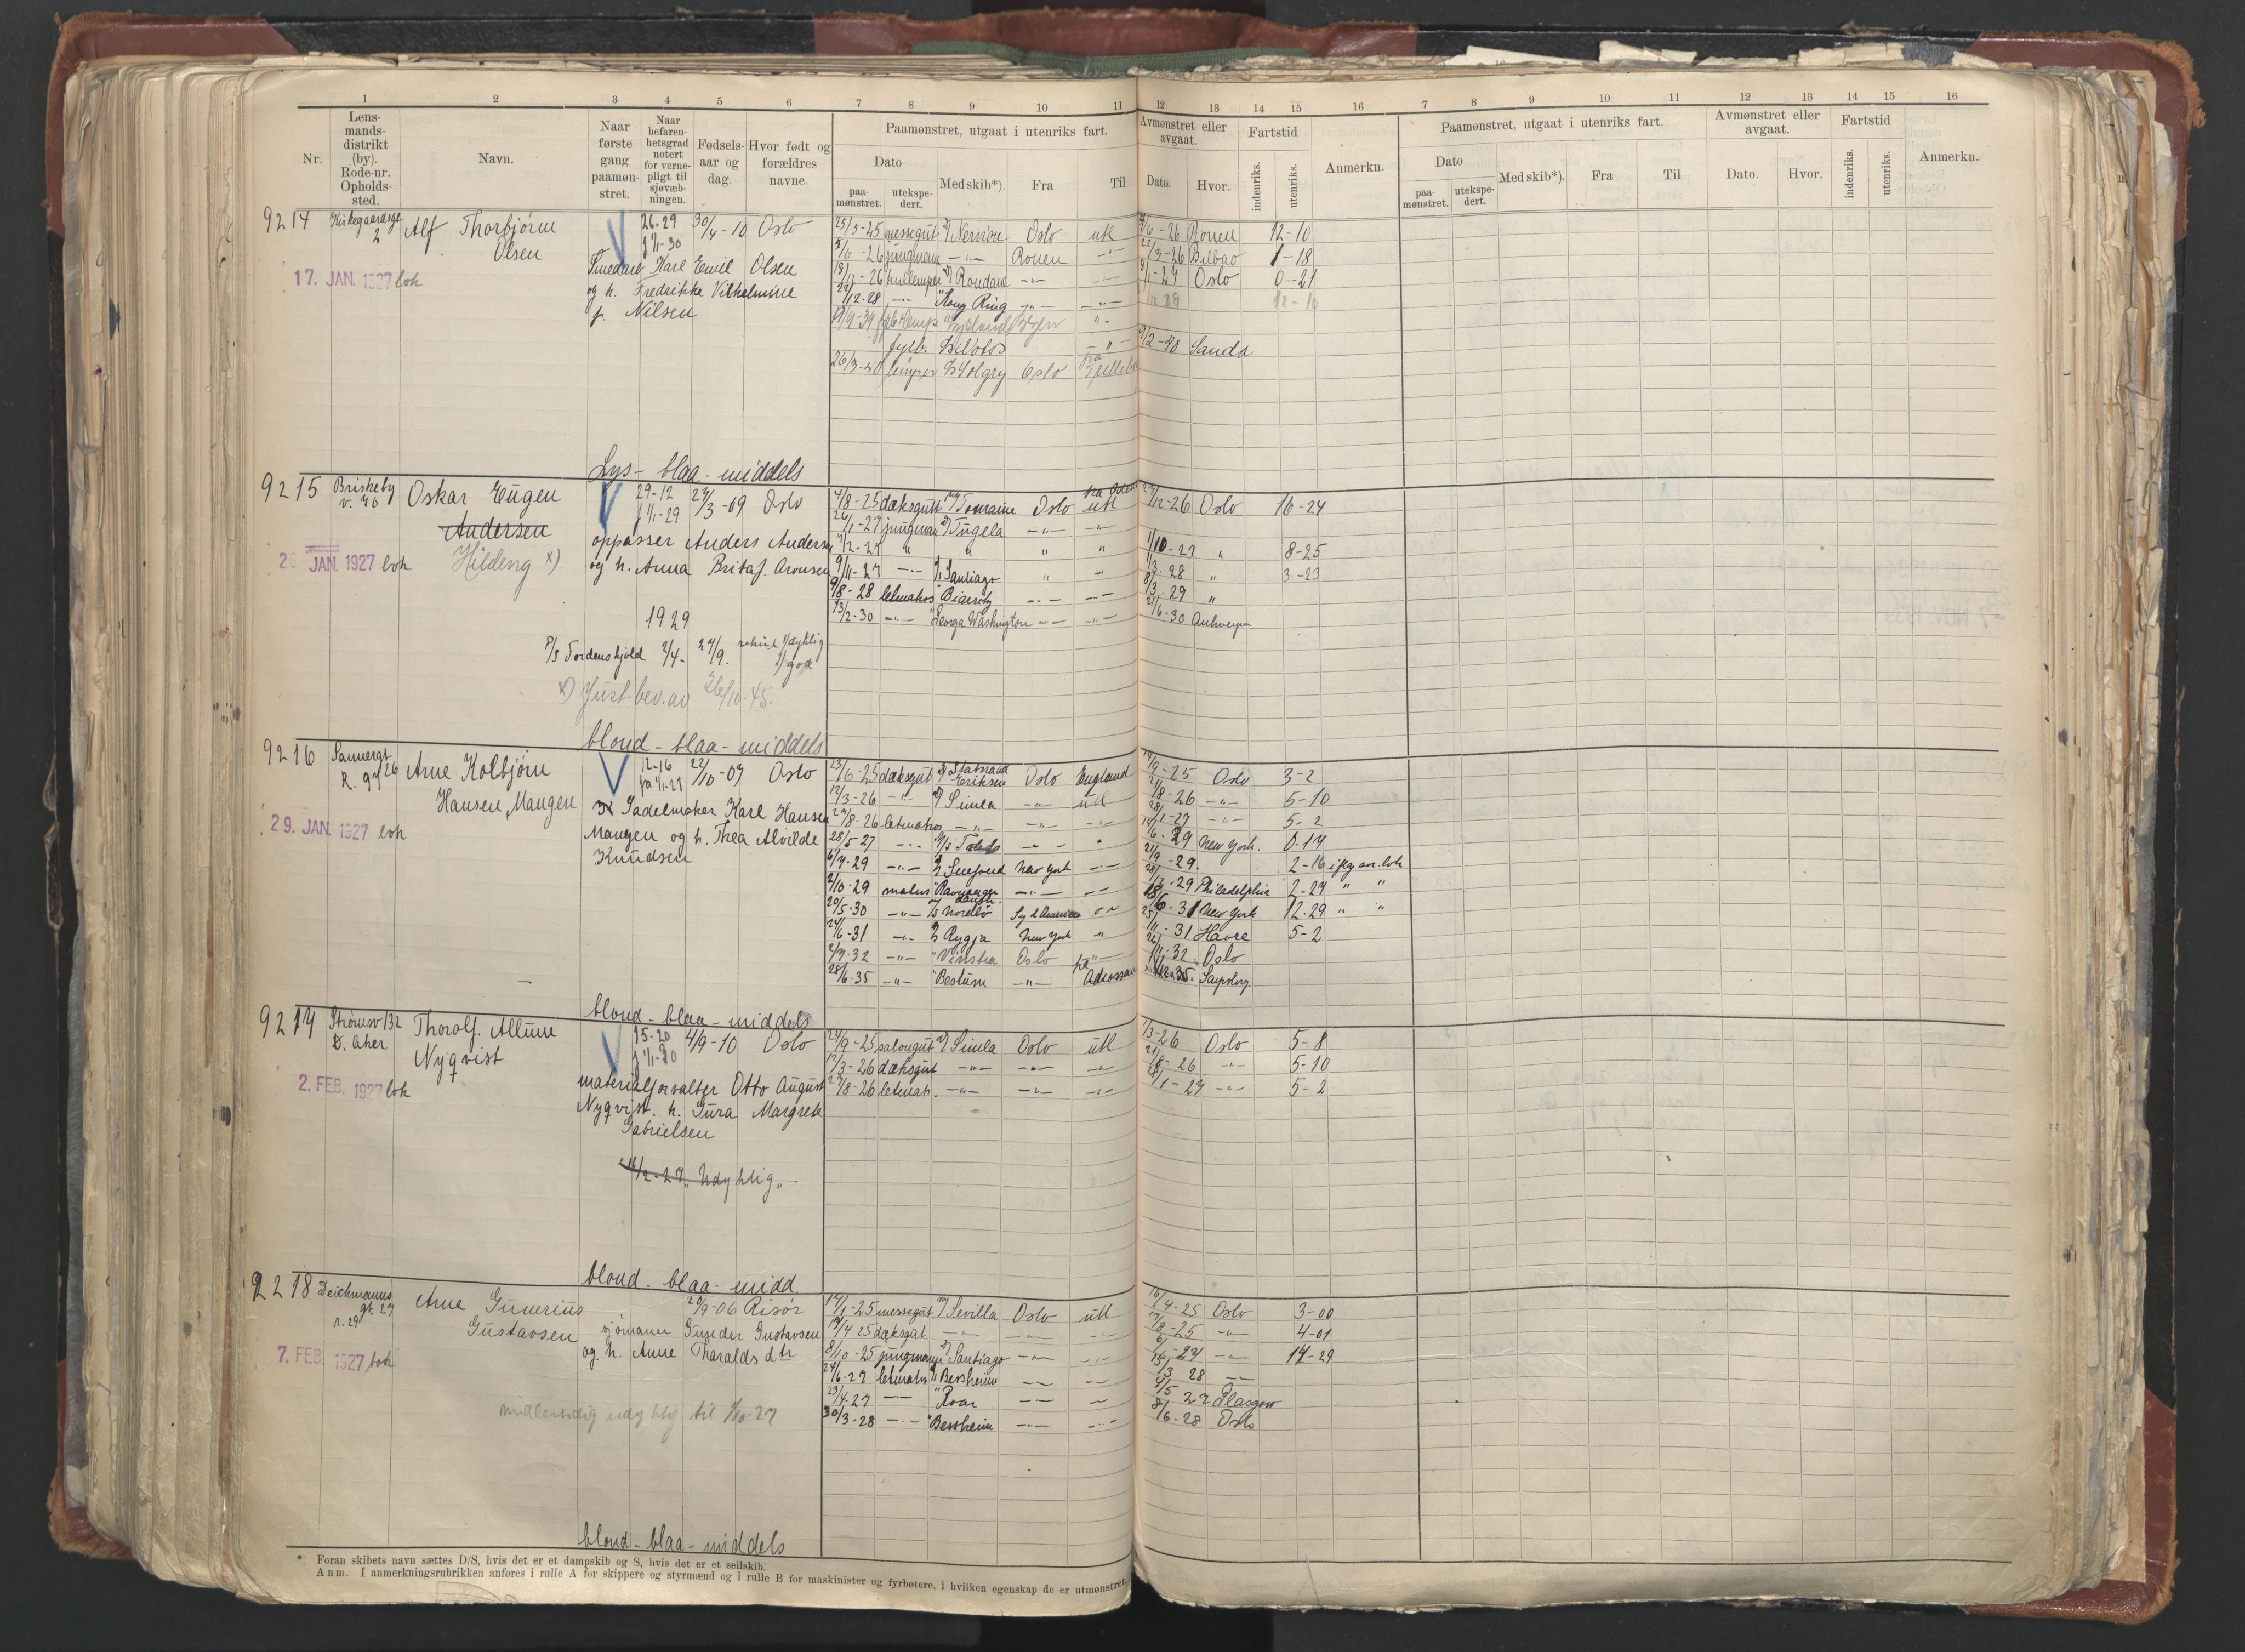 1 2 3 4 5 6 7 8 9 10 11 12 13 14 15 16 7 8 9 10 11 12 13 14 15 16
Nr.
Lens-
mands-
distrikt
(by).
Rode-nr.
Opholds-
sted.
Navn.
Naar
første
gang
paamøn-
stret.
Naar
befaren-
hetsgrad
notert
for verne-
pligt til
sjøvæb-
ningen.
Fødsels-
aar og
dag.
Hvor født og
forældres
navne.
Paamønstret, utgaat i utenriks fart.
Dato
paa-
mønstret.
utekspe-
dert.
Med skib*).
Fra
Til
Avmønstret eller
avgaat.
Dato.
Hvor.
Fartstid
indenriks.
utenriks.
Anmerkn.
Paamønstret, utgaat i utenriks fart.
Dato
paa-
mønstret.
utekspe-
dert.
Med skib*).
Fra
Til
Avmønstret eller
avgaat.
Dato.
Hvor.
Fartstid
indenriks.
utenriks.
Anmerkn.
9214 Kirkegaardsg. 2 Alf Thorbjørn
Olsen
26-29 30/4-10 Oslo
1/1-30
Karl Emil Olsen
og h. Fredrikke Vilhelmine
f. Nilsen
17. JAN. 1927 lok
25/5-25 messegut Oslo utl 12-10
5/6-26 jungmann -"- Rouen -"- 22/3-26 Bilbao 1-18
Rondane -"- Oslo 0-21
12-28 -"- "Kong Ring -"- -"-
9/2-40 Sauda
26/3-40 lemper Solgry Oslo fra
Lys - blaa - middels
9215 Briskeby
v. Oskar Eugen
Andersen
Hildeng x)
29-12 29/3-09 Oslo
1/1-29
oppasser Anders Andersen
og h. Anna Brita f. Aronsen
JAN. 1927 lok
1929
Tordenskjold 2/4- 27/9.
god
x) Just. bev. av 26/10-45.
4/8-25 dæksgutt Touraine Oslo utl 12-26 Oslo 16-24
26/1-27 jungman Tugela -"- -"-
1/10-27 " 8-25
9/11-27 -"- Santiago " " 28 " 3-23
9/8-28 letmatros Biarritz -"- -"- 3-29 "
13/2-30 -"- "George Washington -"- -"- 6-30 Antwerpen
blond - blaa - middels
9216 Sannergt 26
R. 97 Arne Kolbjørn
Hansen, Maugen
12-16 22/10-07 Oslo
fra 1/1-27
Sadelmaker Karl Hansen
Maugen og h. Thea Alvilde
Knudsen
29. JAN. 1927 lok
13/6-25 dæksgut Statsraad
Eriksen Oslo England 9-25 Oslo 3-2
12/3-26 -"- Simla -"- utl 8-26 -"- 5-10
27/8-26 letmatros -"- -"- -"- 28/1-27 -"- 5-2
28/5-27 -"- - " - " 6-29 New York. 0-14
6/7-29 -"- New York -"- 21/9-29. 2-16 iflg av. bok
2/10-29 matros -"- -"- 29 Philadelphia 2-27 " "
20/5-30 -"- Nordbø Syd Amerika 6-31 New York 12-29 " "
24/6-31 -"- Rygja New York " 11-31 Havre 5-2
2/9-32 -"- "Vinstra Oslo -"- 11-32 Oslo
28/6-35 -"- "Bestum -"- Sarpsborg
blond - blaa - middels
9217 Strømsv 132
Thoralf Allum
Nyqvist
15-20 4/9-10 Oslo
1/1-30
materialforvalter Otto August
Nyqvist. h. Gura Margrete
Gabrielsen
2. FEB. 1927 lok
16/2-27 "Udyktig"
24/9-25 salongut Simla Oslo utl 1/3-26 Oslo 5-8
12/3-26 dæksgut -"- -"- -"- 8-26 -"- 5-10
27/8-26 letmatr. -"- -"- -"- 28/1-27 -"- 5-2
blond - blaa - midd.
9218 Deichmanns
gt. 27
r. 29 Arne Gunerius
Gustavsen
20/9-06 Risør
sjømann Gustavsen
og h. Anne Tharaldsdtr
7. FEB. 1927 lok
midlertidig udyktig til 1/10-27
17/1-25 messegut Sevilla Oslo utl 16/4-25 Oslo 3-00
18/4 25 dæksgut -"- -"- -"- 8-25 -"- 4-01
8/10-25 jungmann Santiago -"- -"- -"- 14-29
24/6-27 letmatros Bessheim -"- -"- 15/3 28 -"-
23/4-27 -"- "Roar -"- -"- 4/5 27 Glasgow
30/3-28 -"- "Bessheim -"- -"- 8/6-28 Oslo
blond - blaa - middels
*) Foran skibets navn sættes D/S, hvis det er et dampskib og S, hvis det er et seilskib.
Anm. I anmerkningsrubrikken anføres i rulle A for skippere og styrmænd og i rulle B for maskinister og fyrbøtere, i hvilken egenskap de er utmønstret.